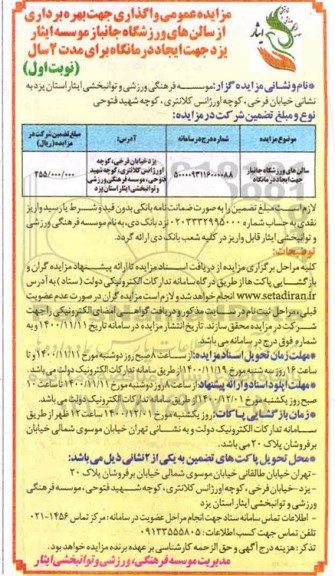 مزایده عمومی واگذاری جهت بهره برداری
از سالن های ورزشگاه جانباز موسسه ایثار
یزد جهت ایجاد درمانگاه برای مدت ۲ سال
(نوبت اول)
ایثار
*نام و نشانی مزایده گزار: موسسه فرهنگی ورزشی و توانبخشی ایثار استان یزد به
نشانی خیابان فرخی، کوچه اورژانس کلانتری، کوچه شهید فتوحی
نوع و مبلغ تضمین شرکت در مزایده:
موضوع مزایده
شماره درج در سامانه
آدرس:
مبلغ تضمین شرکت در مزایده (ریال)
سالن های ورزشگاه جانباز جهت ایجاد درمانگاه
۵۰۰۰۰۹۳۱۱۶۰۰۰۰۸۸
یزد خیابان فرخی، کوچه اورژانس کلانتری، کوچه شهید فتوحی، موسسه فرهنگی ورزشی و توانبخشی ایثار استان یزد
۲۵۵/۰۰۰/۰۰۰
لازم است مبلغ تضمین را به صورت ضمانت نامه بانکی بدون قید و شرط یا رسید واریز
نقدی به حساب شماره ۰۲۰۳۳۳۲۹۹۵۰۰۰ نزد بانک دی، به نام موسسه فرهنگی ورزشی
و توانبخشی ایثار قابل واریز در کلیه شعب بانک دی ارائه گردد.
توضیحات:
کلیه مراحل برگزاری مزایده از دریافت اسناد مزایده تا ارائه پیشنهاد مزایده گران و
بازگشایی پاکت ها از طریق درگاه سامانه تدارکات الکترونیکی دولت (ستاد) به آدرس
www.setadiran.ir انجام خواهد شد و لازم است مزایده گران در صورت عدم عضویت
قبلی، مراحل ثبت نام در سایت مذکور و دریافت گواهی امضای الکترونیکی را جهت
شرکت در مزایده محقق سازند. تاریخ انتشار مزایده در سامانه تاریخ ۱۴۰۰/۱۱/۱۱ به
شماره فوق درج در سامانه می باشد.
*مهلت زمان تحویل اسناد مزایده: از ساعت ۸ صبح روز دوشنبه مورخ ۱۴۰۰/۱۱/۱۱ و تا
ساعت ۱۶ روز سه شنبه مورخ ۱۴۰۰/۱۱/۱۹ از طریق سامانه تدارکات الکترونیک دولت می باشد.
*مهلت آپلود اسناد و ارائه پیشنهاد: از ساعت ۸ روز دوشنبه مورخ ۱۴۰۰/۱۱/۱۱ تا ساعت ۱۰
صبح روز یکشنبه مورخ ۱۴۰۰/۱۲/۰۱ از طریق سامانه تدارکات الکترونیک دولت می باشد.
*زمان بازگشایی پاکات: روز یکشنبه مورخ ۱۴۰۰/۱۲/۰۱ ساعت ۱۲ ظهر از طریق
سامانه تدارکات الکترونیک دولت و به نشانی تهران خیابان موسوی شمالی خیابان
برفروشان پلاک ۲۰ می باشد.
*محل تحویل پاکت های تضمین به یکی از ۲ نشانی ذیل می باشد:
- تهران خیابان طالقانی خیابان موسوی شمالی خیابان برفروشان پلاک ۲۰
- یزد - خیابان فرخی، کوچه اورژانس کلانتری، کوچه شهید فتوحی، موسسه
فرهنگی ورزشی و توانبخشی ایثار
- اطلاعات تماس سامانه ستاد جهت انجام مراحل عضویت در سامانه: مرکز تماس ۱۴۵۶-۰۲۱
تلفن تماس جهت کسب اطلاعات: ۰۹۱۳۳۵۵۵۸۰۵
تذکر: هزینه درج آگهی و حق الزحمه کارشناسی بر عهده برنده مزایده خواهد بود.
مدیریت موسسه فرهنگی، ورزشی و توانبخشی ایثار